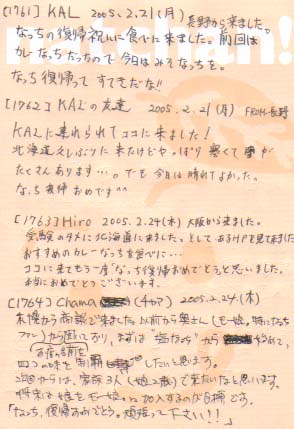 [1761] KAL 2005.2.21(月) 長野から来ました。
なっちの復帰祝いに食べに来ました。前回は
カレーなっちだったので今日はみそなっちを。
なっち復帰って すてきだな!!
[1762] KALの友達 2005.2.21(月) FROM長野
KALに連れられてココに来ました!
北海道久しぶりに来たけどやっぱり寒くて雪が
たくさんあります…。でも今日は晴れてよかった。
なっち復帰おめです^^
[1763] Hiro 2005.2.24(木) 大阪から来ました。
受験のタメに北海道に来ました。そしてあるHPを見て来ました
おすすめのカレーなっちを食べに…
ココに来てもう一度「なっち復帰おめでとう」と思いました。
本当におめでとうございます。
[1764] Chama (4わア) 2005.2.24(木)
札幌から商談で来ました。以前から奥さん(モー娘。特になっち
ファン)から聞いており、まずは"塩なっち"から始めて、
お店の名前を
四つの味を制覇したいと思います。
次回からは、家族3人(娘2歳)で来たいなと思います。
将来は娘をモー娘。に加入するのが目標です。
「なっち、復帰おめでとう。頑張って下さい!!」